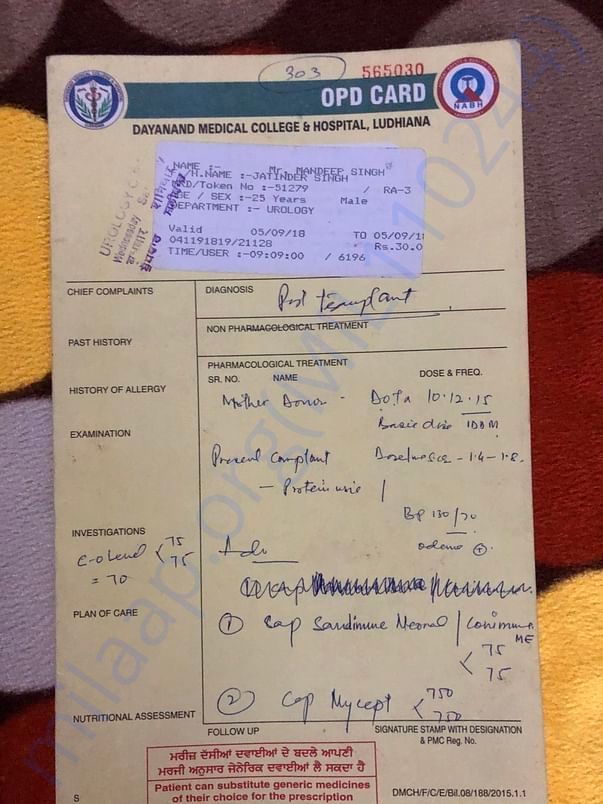 303
565030
OPD CARD
NABH
DAYANAND MEDICAL COLLEGE & HOSPITAL, LUDHIANA
NAME :- Mr. MANDEEP SINGH
/H.NAME :-JATINDER SINGH
RD/Token No :-51279 / RA-3
GE / SEX :-25 Years Male
DEPARTMENT :- UROLOGY
Valid 05/09/18 TO 05/09/1
041191819/21128 Rs.30.0
TIME/USER :-09:09:00 / 6196
UROLOGY
Wednesday
ਬੁੱਧਵਾਰ
CHIEF COMPLAINTS
DIAGNOSIS
Post transplant
NON PHARMACOLOGICAL TREATMENT
PAST HISTORY
PHARMACOLOGICAL TREATMENT
SR. NO. NAME DOSE & FREQ.
HISTORY OF ALLERGY
Mother Donor - DOTx 10.12.15
EXAMINATION
Present Complaint 1.4-1.8
- Proteinuria
BP 130/70
INVESTIGATIONS
C-0 level < 75 75
= 70
Adv
PLAN OF CARE
① Cap Sandimune Neoral / Conimune ME
< 75 75
② Cap Mycept < 750 750
NUTRITIONAL ASSESSMENT
FOLLOW UP
SIGNATURE STAMP WITH DESIGNATION
& PMC Reg. No.
ਮਰੀਜ਼ ਦੱਸੀਆਂ ਦਵਾਈਆਂ ਦੇ ਬਦਲੇ ਆਪਣੀ
ਮਰਜੀ ਅਨੁਸਾਰ ਜੇਨੇਰਿਕ ਦਵਾਈਆਂ ਲੈ ਸਕਦਾ ਹੈ
Patient can substitute generic medicines
of their choice for the prescription
S
DMCH/F/C/E/Bil.08/188/2015.1.1